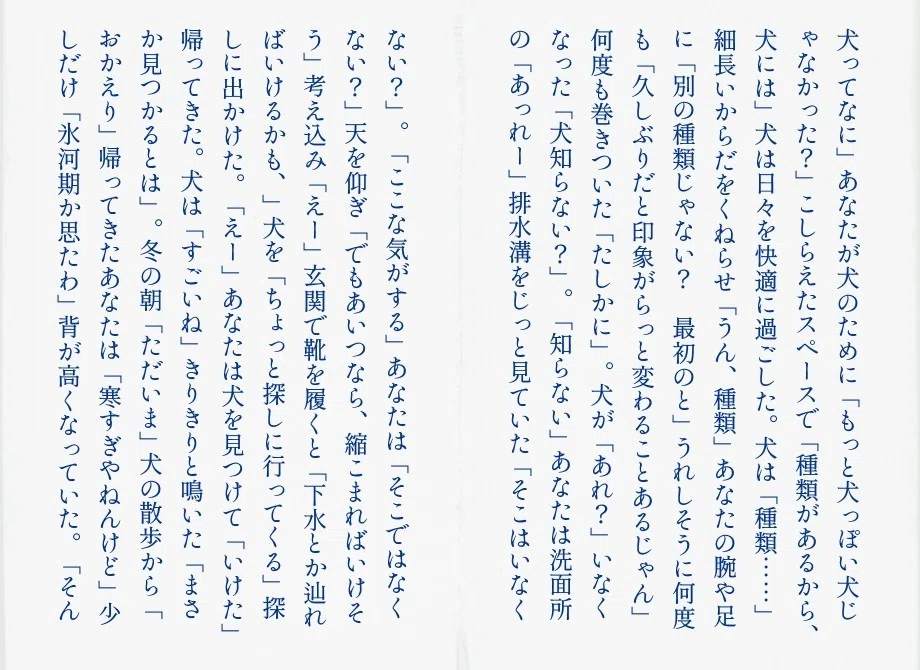 犬ってなに」あなたが犬のために「もっと犬っぽい犬じ
ゃなかった？」こしらえたスペースで「種類があるから、
犬には」犬は日々を快適に過ごした。犬は「種類……」
細長いからだをくねらせ「うん、種類」あなたの腕や足
に「別の種類じゃない？　最初のと」うれしそうに何度
も「久しぶりだと印象がらっと変わることあるじゃん」
何度も巻きついた「たしかに」。犬が「あれ？」いなく
なった「犬知らない？」。「知らない」あなたは洗面所
の「あっれー」排水溝をじっと見ていた「そこはいなく
ない？」。「ここな気がする」あなたは「そこではなく
ない？」天を仰ぎ「でもあいつなら、縮こまればいけそ
う」考え込み「えー」玄関で靴を履くと「下水とか辿れ
ばいけるかも、」犬を「ちょっと探しに行ってくる」探
しに出かけた。「えー」あなたは犬を見つけて「いけた」
帰ってきた。犬は「すごいね」きりきりと鳴いた「まさ
か見つかるとは」。冬の朝「ただいま」犬の散歩から「
おかえり」帰ってきたあなたは「寒すぎやねんけど」少
しだけ「氷河期か思たわ」背が高くなっていた。「そん